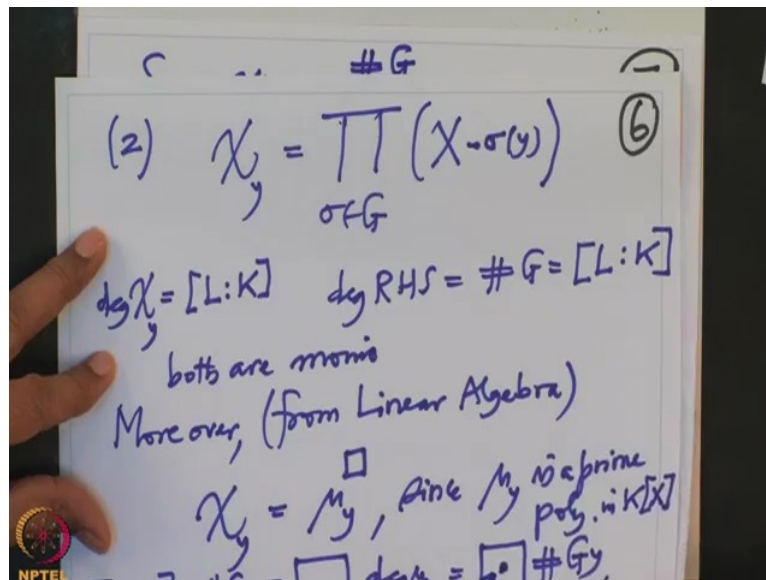 # G
(2) χ_y = ∏ (X - σ(y)) ⑥
σ∈G
deg χ_y = [L:K] deg RHS = # G = [L:K]
both are monic
Moreover, (from Linear Algebra)
χ_y = μ_y^□, since μ_y is a prime
poly. in K[X]
deg μ = # Gy
NPTEL